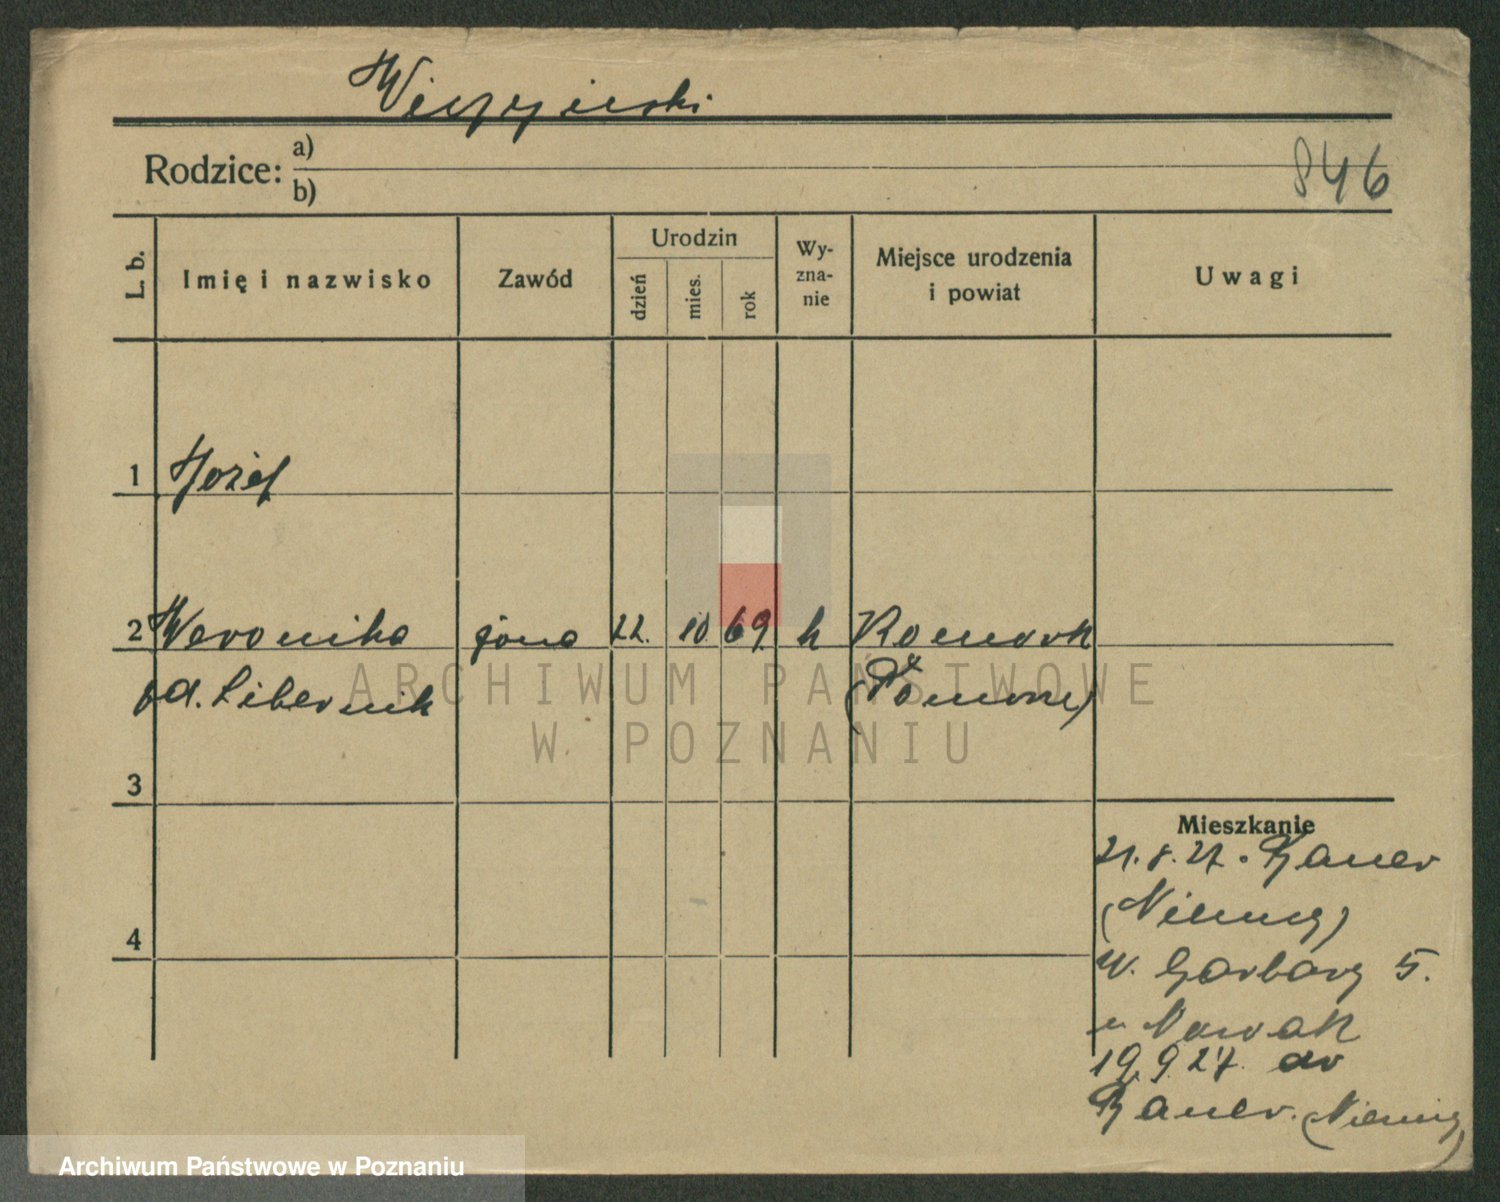 Rodzice: a)
b)
846
L. b.
Imię i nazwisko
Zawód
Urodzin
dzień
mies.
rok
Wy-
zna-
nie
Miejsce urodzenia
i powiat
Uwagi
1 Józef
2 Weronika żona 22. 10 69. k
od. Libernik
3
4
Mieszkanie
21.8.27. Baner
(Niemcy)
W. Garbary 5.
u Nowak
19.9.27. do
Baner. (Niemcy)
ARCHIWUM PAŃSTWOWE
W POZNANIU
Archiwum Państwowe w Poznaniu